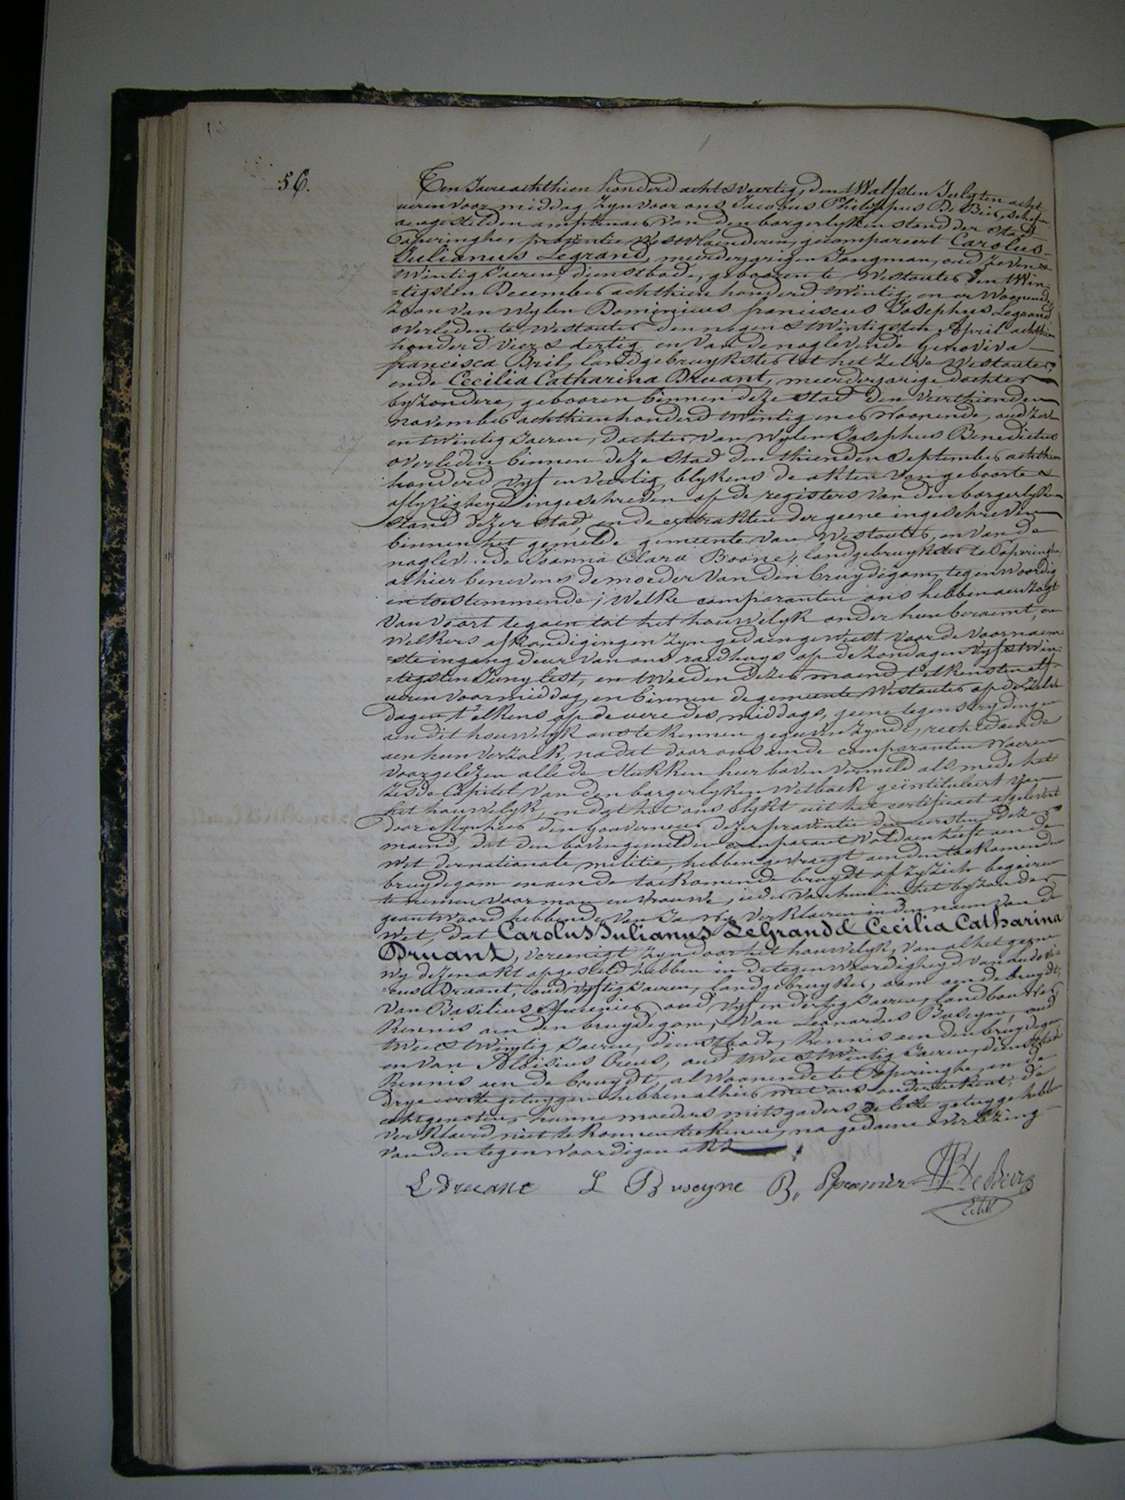 56.
Ten Jaere achthien honderd acht & veertig, den twalfsten July ten acht
ueren voor middag zyn voor ons Jacobus Philippus De Bier, schepen
aengestelden amptenaer van den borgerlyken stand der stad
Poperinghe, provintie Westvlaenderen, gecompareert Carolus
Julianus Legrand, meerderjarigen Jongman, oud zeven en
twintig Jaeren, dienstbode, geboren te Westouter den twin-
=tigsten December achthien honderd twintig, en er Woonende
Zoon van wylen Dominicus franciscus Josephus Legrand
overleden te Westouter den negen & twintigsten April achthien
honderd vier & dertig en van de naglevende Genoviva
francisca Bril, landgebruykster tot het zelve Westouter,
ende Cecilia Catharina Druant, meerderjarige dochter
byzondere, gebooren binnen deze stad den veerthienden
november achthien honderd twintig en er Woonende, oud zeven
en twintig Jaeren, dochter van wylen Josephus Benedictus
overleden binnen deze stad den thienden September achthien
honderd vyf en veertig, blykens de akten van geboorte &
aflyvigheyd ingeschreven op de registers van den borgerlyken
stand dezer stad, en de extrakten der geene ingeschreven
binnen het gemelde gemeente van Westouter, en van de
naglev..de Joanna Clara Boone, landgebruykster te Poperinghe,
alhier benevens de moeder van den bruydegom, tegenwoordig
en toestemmende; Welke comparanten ons hebben aenzogt
van voort te gaen tot het houwelyk onder hun beraemt, en
Welkers afkondigingen zyn gedaen geweest voor de voornaem
=ste ingang deur van ons raedhuys op de zondagen vyf & twin-
=tigsten Juny lest, en tweeden dezer maend t'elkens ten elf
ueren voormiddag, en binnen de gemeente Westouter op de zelve
dagen t'elkens op de uere des middags, geene tegenstrydingen
aen dit houwelyk ons te kennen gegeven zynde, recht doende
aen hun verzoek, na dat door ons aende comparanten waeren
voorgelezen alle de stukken hier boven vermeld als mede het
zesde Capitel van den borgerlyken Wetboek geintituleert van
het houwelyk, en dat het ons blykt uit het certificaet afgelevert
door Mynheer den Gouverneur dezer provintie den eersten dezer
maend, dat den bovengemelden comparant voldaen heeft aen de
Wet der nationale militie, hebben gevraegt aen den toekomenden
bruydegom en aen de toekomende bruydt of zy zich begeiren
te nemen voor man en vrouwe, ieder van hun in het byzonder
geantwoord hebbende van Ja Wy Verklaeren in den naem van de
Wet, dat Carolus Julianus Legrand & Cecilia Catharina
Druant, vereenigt zyn door het houwelyk, van al het geene
wy dezen akt opgesteld hebben in de tegenwoordigheyd van
Druant, oud vyftig Jaeren, landgebruyker, oom aen de bruydt,
van Basilius oud vyf en dertig Jaeren, landbouwer,
kennis aen den bruydegom, van Leonardus Buseyne, oud
twee & twintig Jaeren, dienstbode, kennis aen den bruydegom
en van Aloisius oud twee & twintig Jaeren, dienstbode
kennis aen de bruydt, al Woonende te Poperinghe, en de
drye eerste getuygen hebben alhier met ons onderteekent, de
echtgenoten, hunne moeders mitsgaders de leste getuyge hebben
verklaerd niet te konnen teekenen, na gedaene voorlezing
van den tegenwoordigen akt
L Druant L Buseyne B,, De Bier